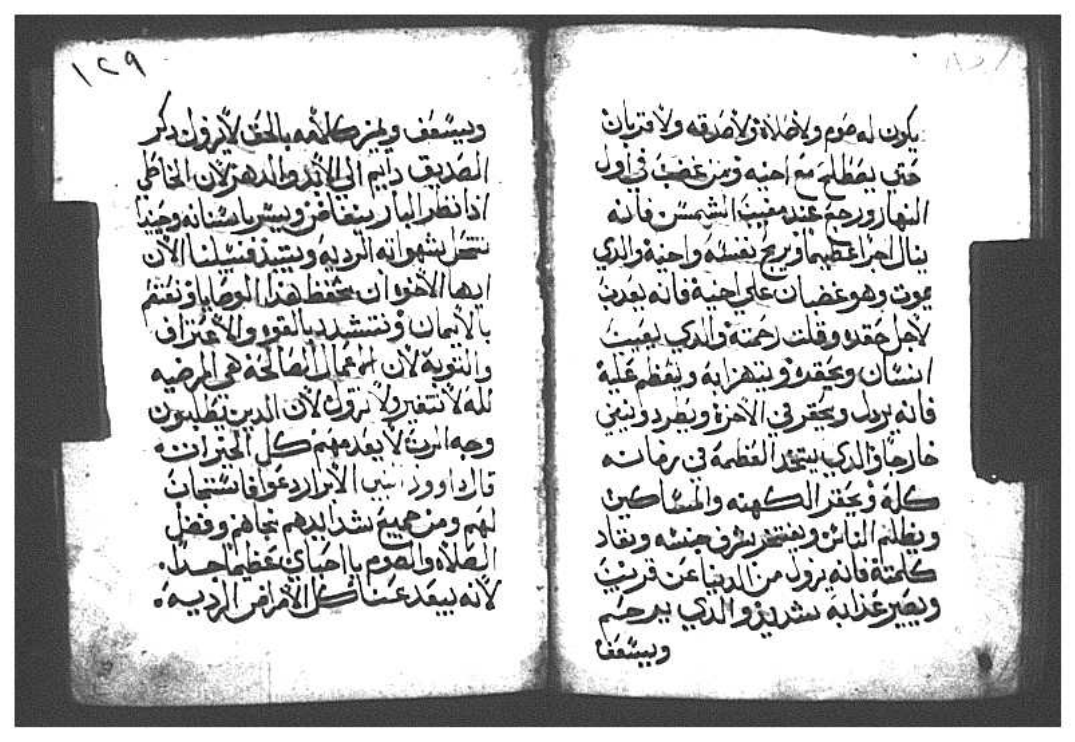 يكون له صوم ولا صلاة ولا صدقه ولا قربان
حتى يصطلح مع اخيه ومن غضب في اول
النهار ورجع عند مغيب الشمس فانه
ينال اجرا عظيما ويربح نفسه واخيه والدي
يموت وهو غضبان على اخيه فانه يعدب
لاجل حقده وقلت رحمته والدي يعيب
انسان ويحقده ويتهزا به ويعظم عليه
فانه يردل ويحقر في الاخره ويطرد ويبقي
خارجا والدي يتخد العظمه في زمانه
كله ويحقر الكهنه والمساكين
ويظلم الناس ويفتخر بشرف جنسه ونفاد
كلمته فانه يزول من الدنيا عن قريب
ويصير عذابه شديد والدي يرحم
ويسعف
١٢٩
ويسعف كلامه بالحق لا يزول دكر
الصديق دايم الي الابد والدهر لان الخاطي
ادا نظر البار يتغاض ويسر باسنانه وحيدا
تنحل شهواته الرديه وتبيد فسبيلنا الان
ايها الاخوه ان نحفظ هدا الوصايا ونعتصم
بالايمان ونتشدد بالقوه والاعتراف
والتوبة لان الاعمال الصالحة هي المرضيه
لله لا تتغير ولا تزول لان الدين يطلبون
وجه الرب لا يعدمهم كل الخيرات
قال داوود النبي الابرار دعوا فاستجاب
لهم ومن جميع شدايدهم نجاهم وفضل
الصلاه والصوم يا احباي عظيما جدا.
لانه يبعد عنا كل الامراض الرديه.